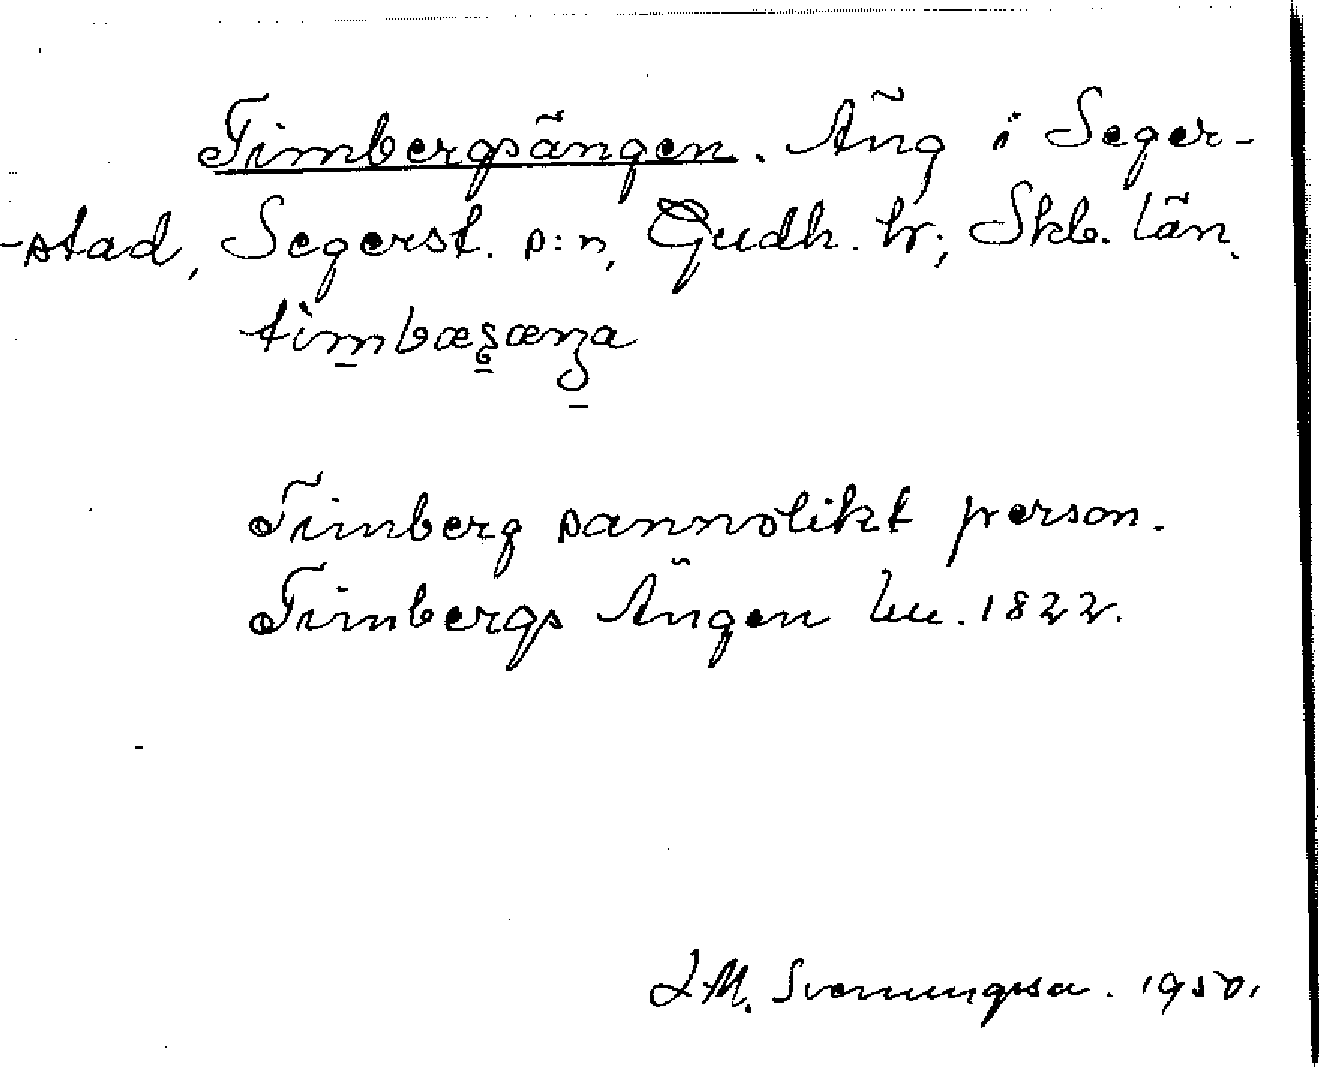 Timbergsängen. Äng i Seger-
-stad, Segerst. s:n, Gudh. hr; Skb. län.
timbæʂæŋa
Timberg sannolikt person.
Timbergs Ängen Lu. 1822.
I. M. Svenungsson. 1950.